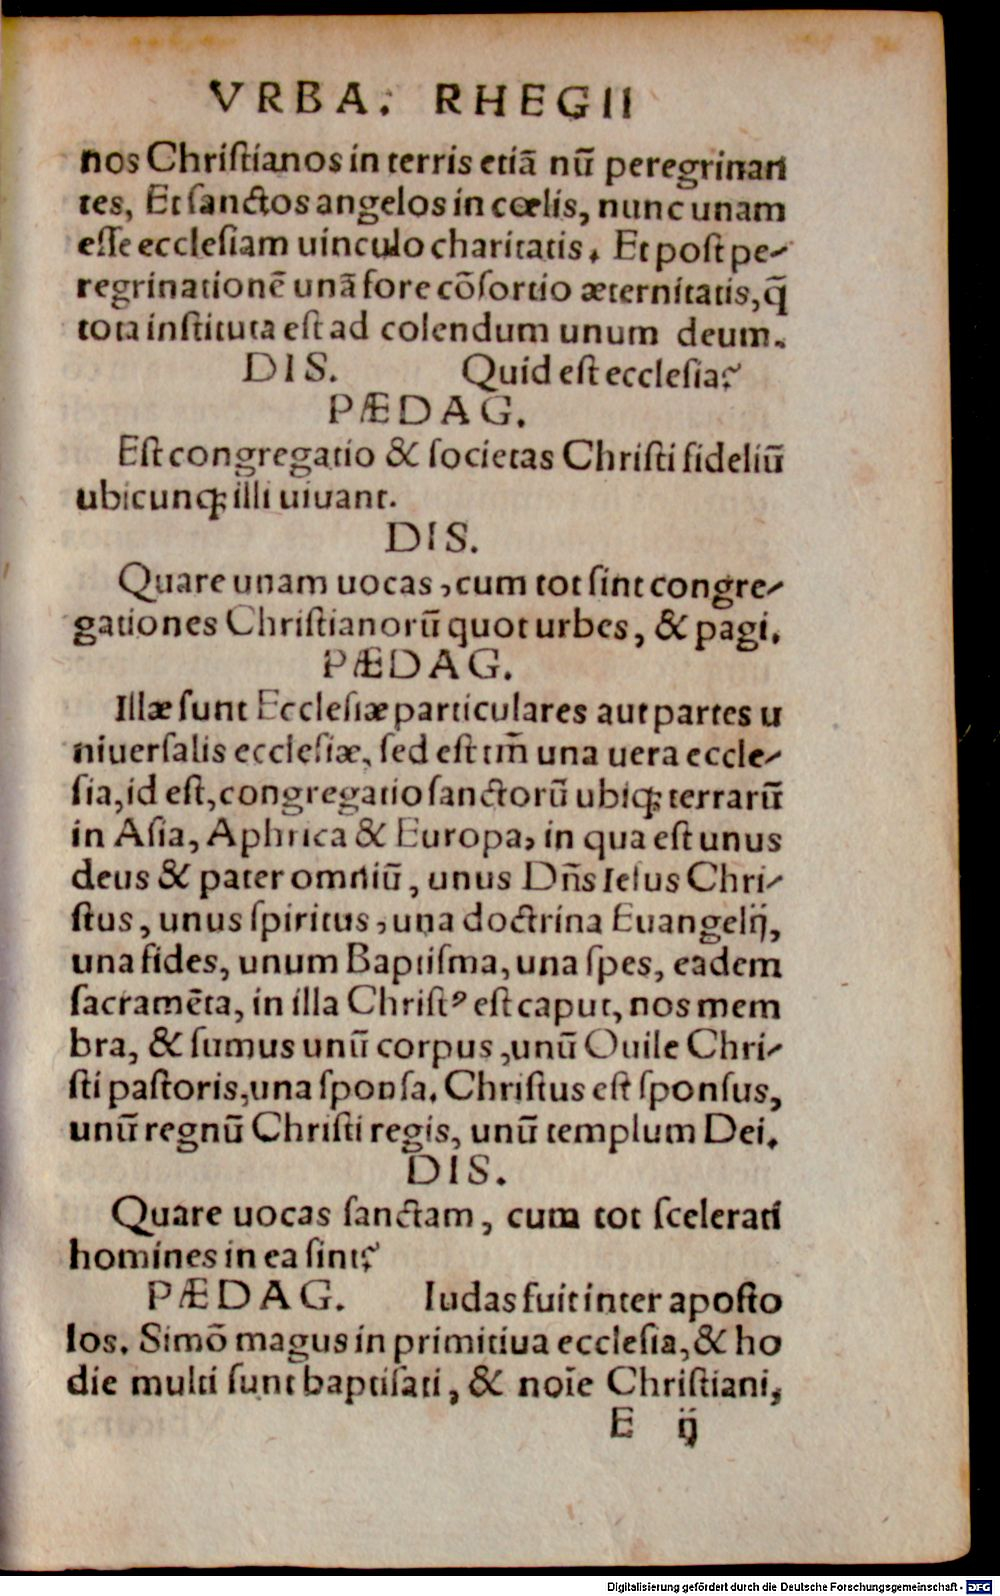 VRBA. RHEGII
nos Christianos in terris etiā nū peregrinan
tes, Et sanctos angelos in cœlis, nunc unam
esse ecclesiam uinculo charitatis. Et post pe-
regrinationē unā fore cōsortio æternitatis, q̄
tota instituta est ad colendum unum deum.
DIS. Quid est ecclesia?
PÆDAG.
Est congregatio & societas Christi fideliū
ubicunq; illi uiuant.
DIS.
Quare unam uocas, cum tot sint congre-
gationes Christianorū quot urbes, & pagi.
PÆDAG.
Illæ sunt Ecclesiæ particulares aut partes u
niuersalis ecclesiæ, sed est tm̄ una uera eccle-
sia, id est, congregatio sanctorū ubiq; terrarū
in Asia, Aphrica & Europa, in qua est unus
deus & pater omniū, unus Dn̄s Iesus Chri-
stus, unus spiritus, una doctrina Euangelij,
una fides, unum Baptisma, una spes, eadem
sacramēta, in illa Christꝰ est caput, nos mem
bra, & sumus unū corpus, unū Ouile Chri-
sti pastoris, una sponsa. Christus est sponsus,
unū regnū Christi regis, unū templum Dei.
DIS.
Quare uocas sanctam, cum tot scelerati
homines in ea sint?
PÆDAG. Iudas fuit inter aposto
los. Simō magus in primitiua ecclesia, & ho
die multi sunt baptisati, & noīe Christiani,
E ij
Digitalisierung gefördert durch die Deutsche Forschungsgemeinschaft - DFG